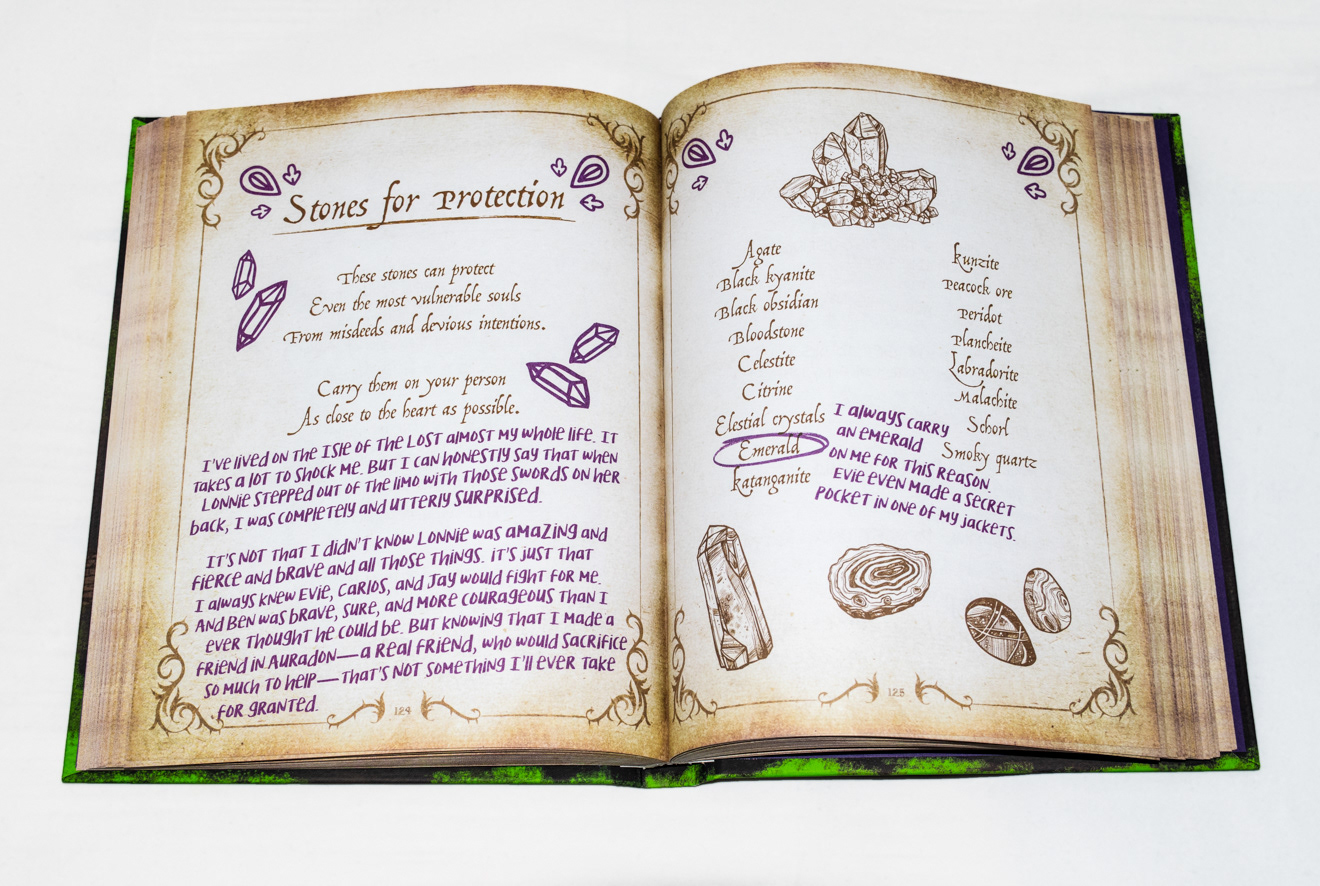 Stones for Protection
These stones can protect
Even the most vulnerable souls
From misdeeds and devious intentions.
Carry them on your person
As close to the heart as possible.
I've lived on the Isle of the Lost almost my whole life. It
takes a lot to shock me. But I can honestly say that when
Lonnie stepped out of the limo with those swords on her
back, I was completely and utterly surprised.
It's not that I didn't know Lonnie was amazing and
fierce and brave and all those things. It's just that
I always knew Evie, Carlos, and Jay would fight for me.
And Ben was brave, sure, and more courageous than I
ever thought he could be. But knowing that I made a
friend in Auradon—a real friend, who would sacrifice
so much to help—that's not something I'll ever take
for granted.
124
Agate
Black kyanite
Black obsidian
Bloodstone
Celestite
Citrine
Elestial crystals
Emerald
katanganite
kunzite
Peacock ore
Peridot
Plancheite
Labradorite
Malachite
Schorl
Smoky quartz
I always carry
an emerald
on me for this reason.
Evie even made a secret
pocket in one of my jackets.
125